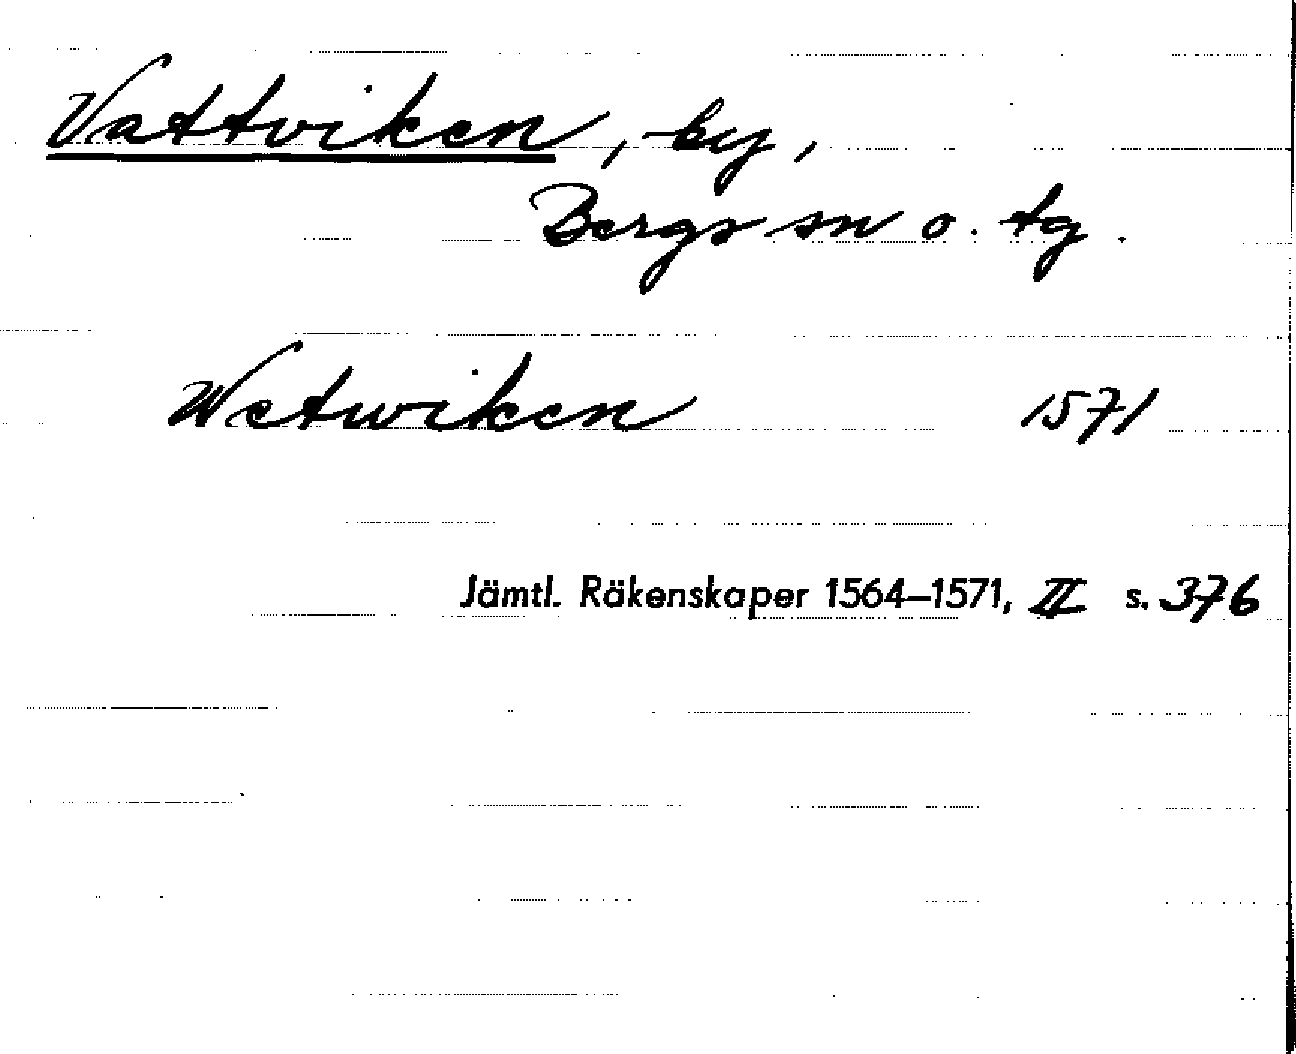 Vattviken, by,
Bergs sn o. tg.
Wetwiken 1571
Jämtl. Räkenskaper 1564–1571, II s. 376